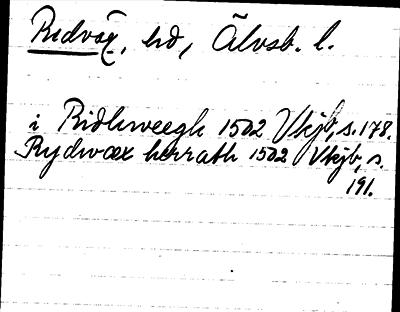 Redväg, hd, Älvsb. l.
i Ridhweegh 1502 Vkjb, s. 178.
Rydwæx herrath 1502 Vkjb, s.
191.